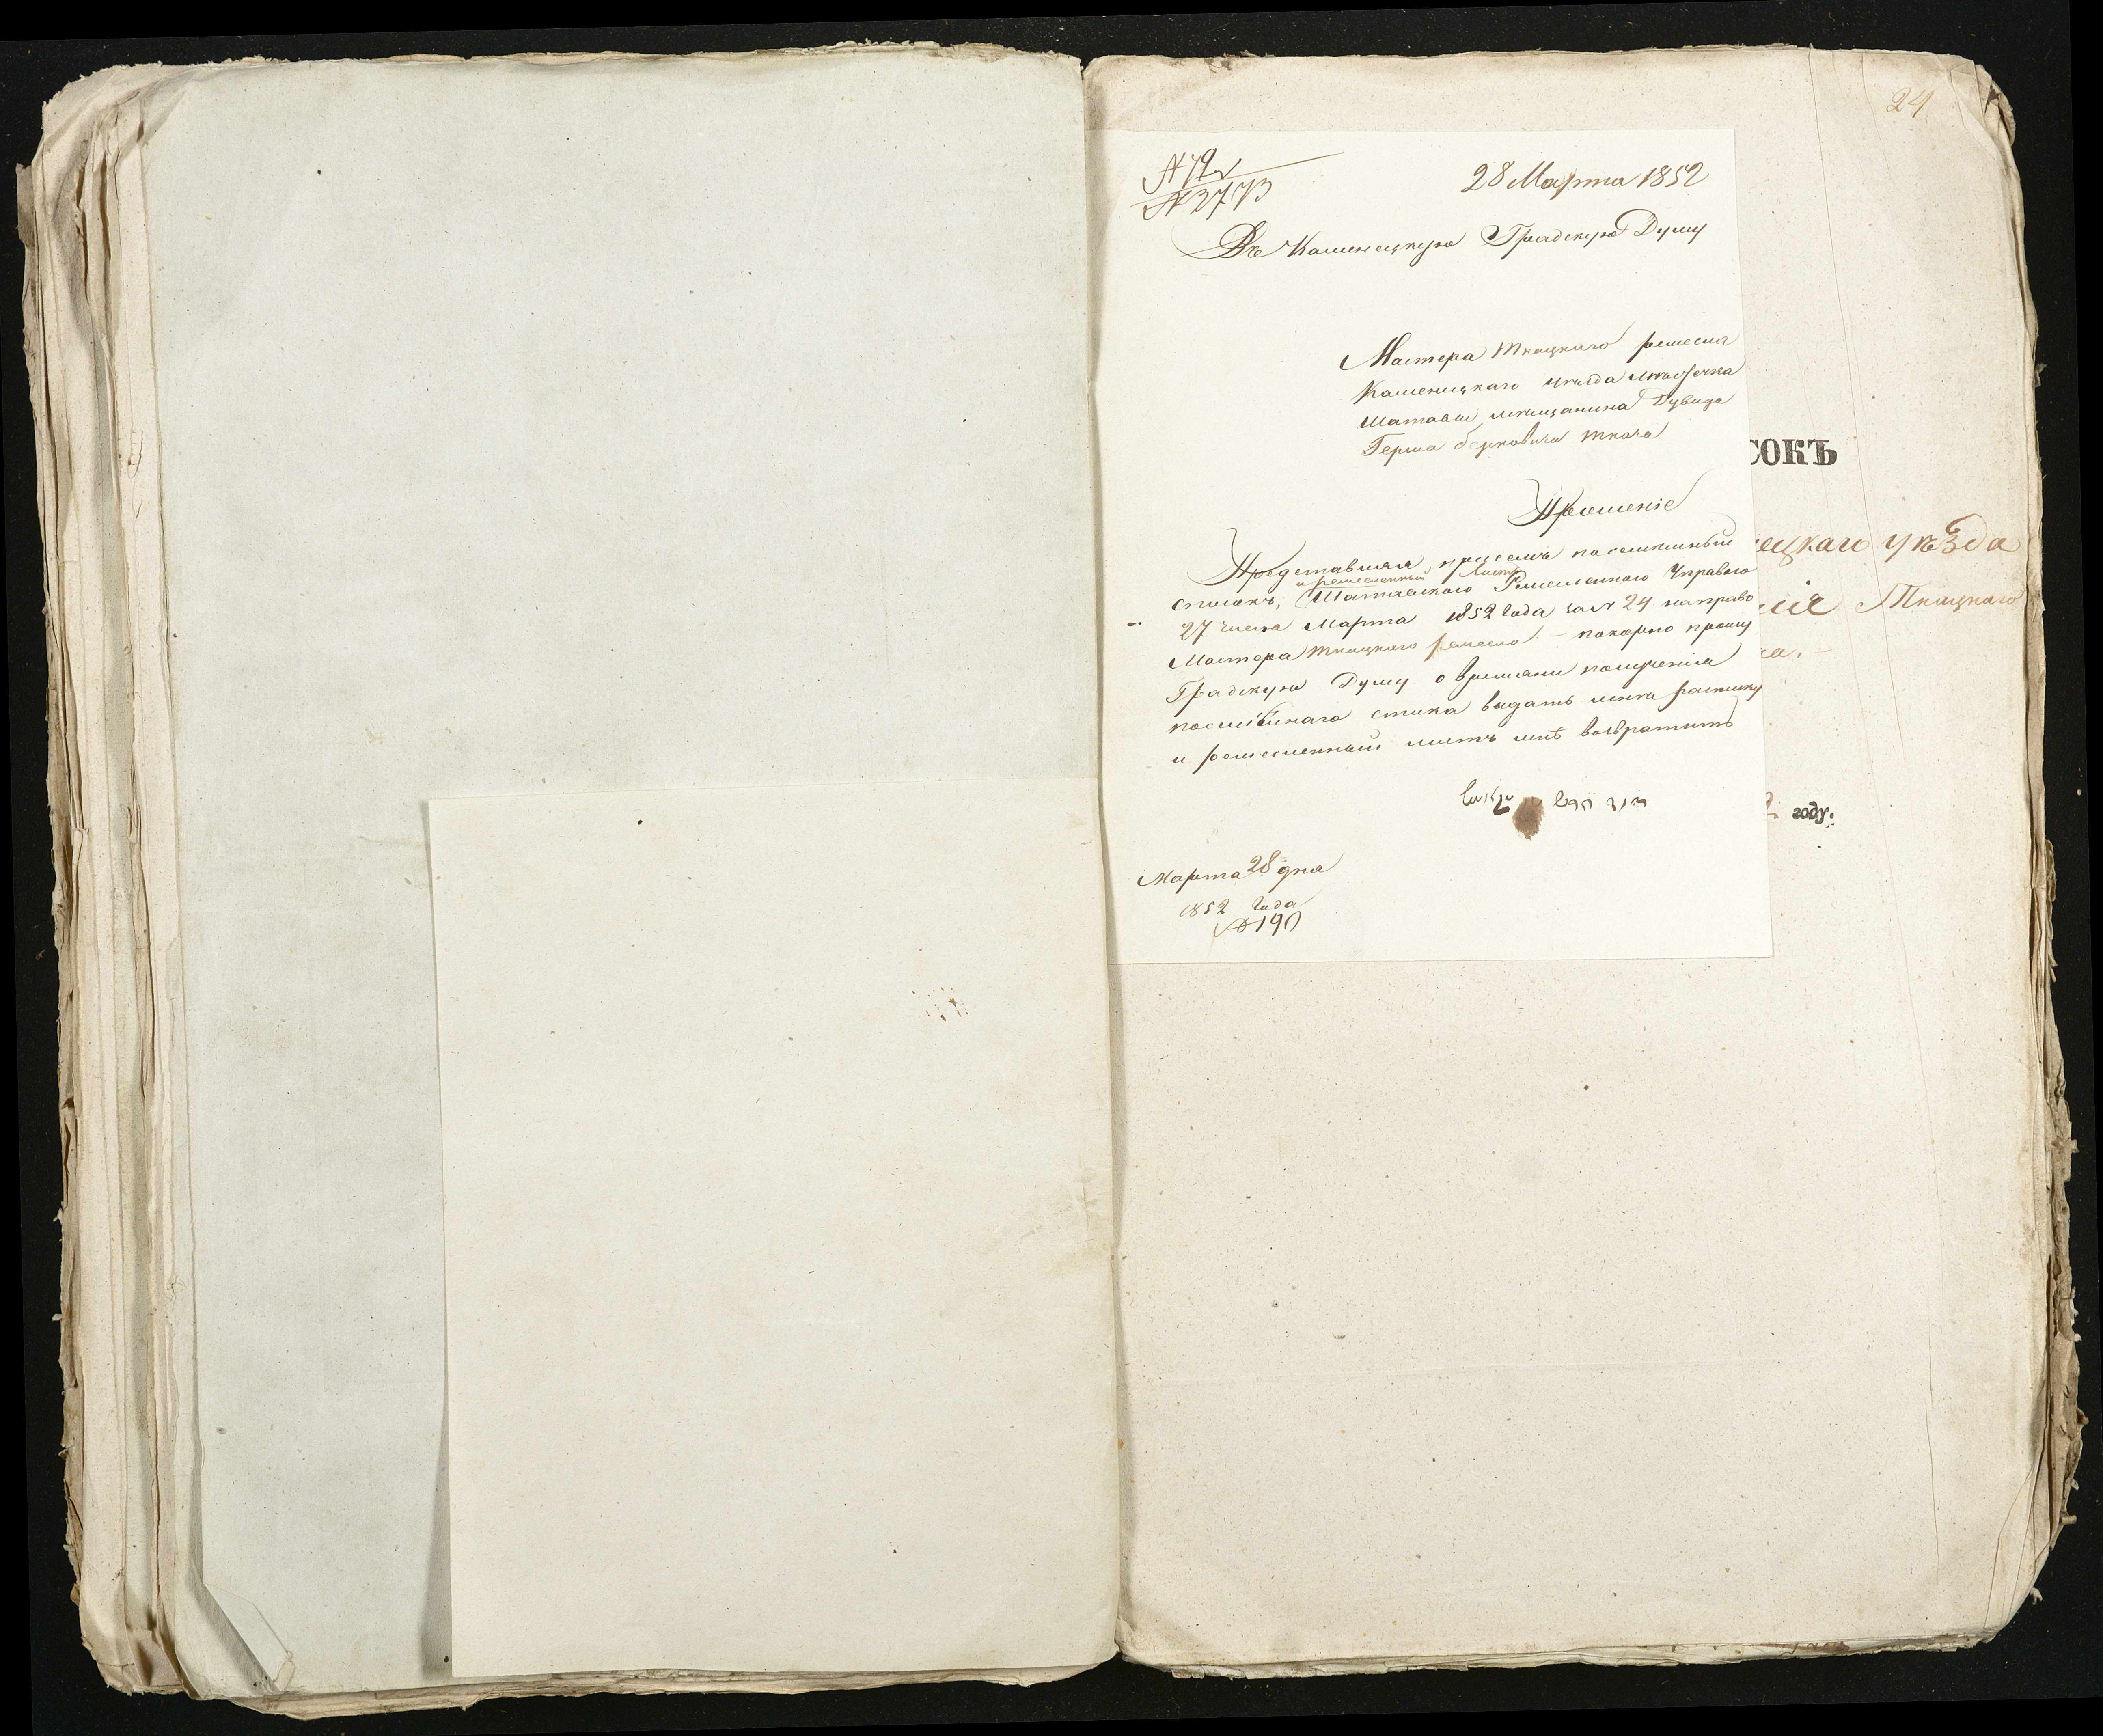 24
28 Марта 1852
№ 2773
Въ Каменецкую Градскую Думу
Мастера ткацкаго ремесла
Каменецкаго уезда местечка
Шатавы мещанина Дувида
Герша Берковича Ткача
Прошеніе
Представляя присемъ посемейный
и ремесленный Листъ
списокъ, Шатавскаго Ремесленного Управого
27 числа Марта 1852 года за № 24 направо
Мастера ткацкаго ремесла – покорно прошу
Градскую Думу о времяни получения
посемейнаго списка выдать мне расписку
и ремесленный листъ мнѣ возвратить
Марта 28 дня
1852 года
№ 190
СОКЪ
ецкаго уѣзда
Ткацкаго
2 году.